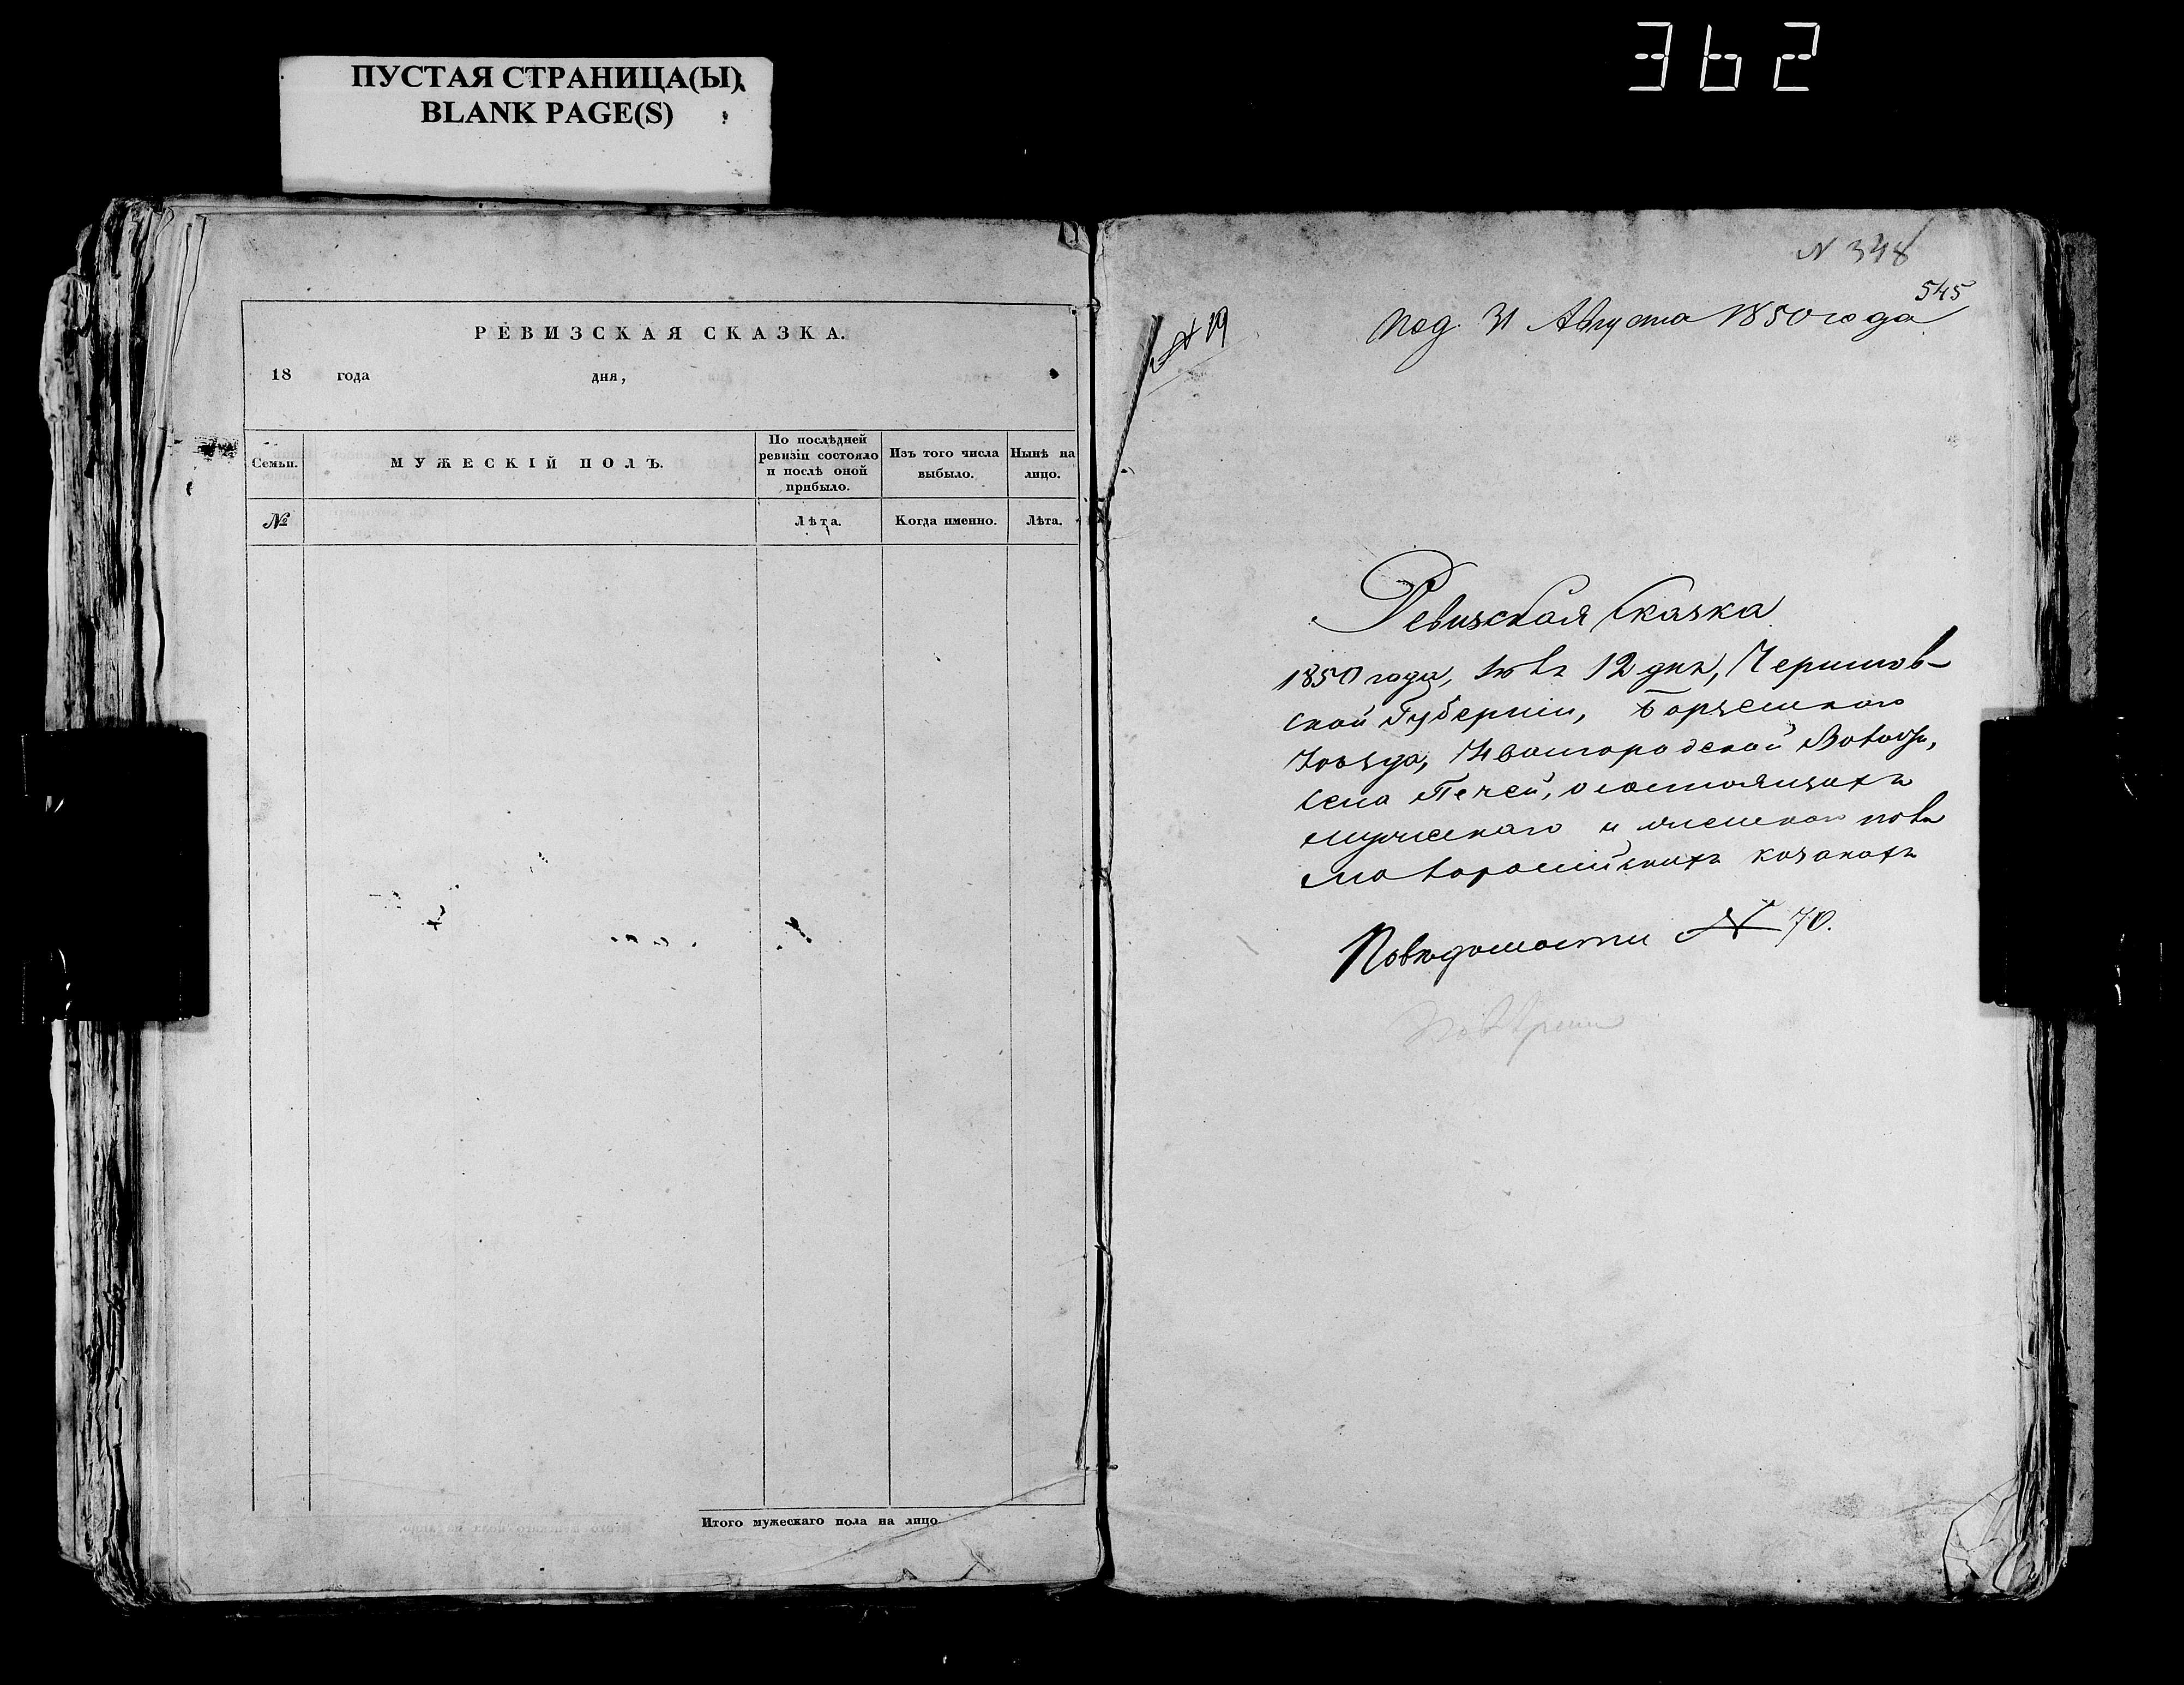 362
ПУСТАЯ СТРАНИЦА(Ы)
BLANK PAGE(S)
РЕВИЗСКАЯ СКАЗКА.
18 года дня,
Семьи.
МУЖЕСКІЙ ПОЛЪ.
По послѣдней
ревизіи состояло
и послѣ оной
прибыло.
Изъ того числа
выбыло.
Нынѣ на
лицо.
№
Лѣта.
Когда именно.
Лѣта.
Итого мужескаго пола на лицо
N 348
545
№ 19
Под. 31 Августа 1850 года
Ревизская Сказка
1850 года, 12 дня, Чернигов-
ской Губерніи, Борзенского
Уѣзда, Ивангородской Волости,
села Печей, о состоящихъ
мужескаго и женскаго пола
малороссійскихъ козакахъ
По вѣдомости № 70.